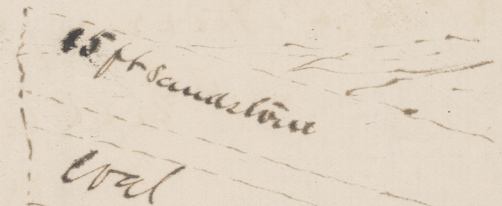 15 ft sandstone
Coal